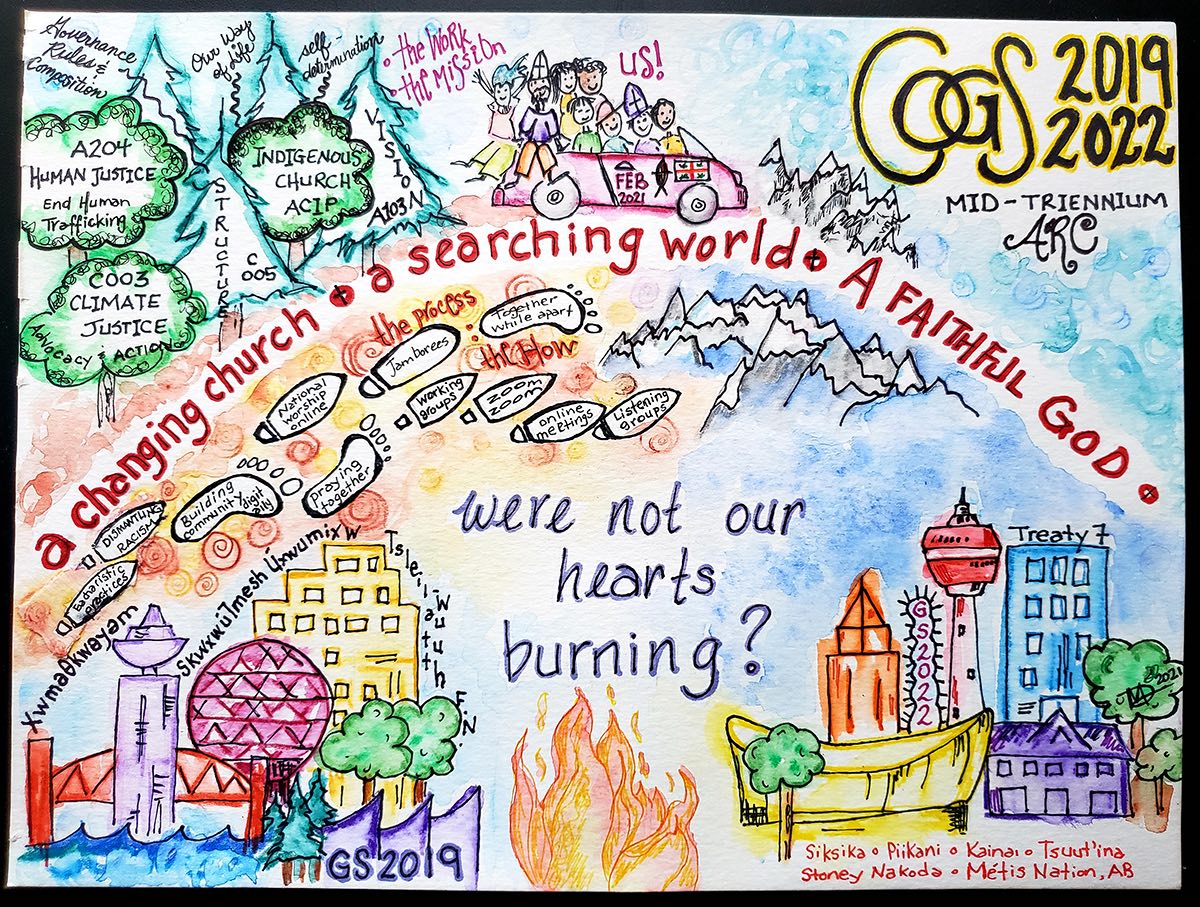 Governance
Rules &
Composition
Our Way
of Life
self-
determination
• the Work
• the Mission
us!
COGS
2019
2022
MID-TRIENNIUM
ARC
A204
HUMAN JUSTICE
End Human
Trafficking
INDIGENOUS
CHURCH
ACIP
VISION
A103
STRUCTURE
C
005
C003
CLIMATE
JUSTICE
ADVOCACY & ACTION
FEB
2021
a changing church • a searching world • A FAITHFUL GOD •
the process:
the How
Together
while apart
Jamborees
National
worship
online
working
groups
zoom
zoom
online
meetings
Listening
groups
praying
together
Building
community
digit
ally
DISMANTLING
RACISM
Eucharistic
practices
were not our
hearts
burning?
Xwmaθkwayam
Skwxwú7mesh Úxwumixw
Tsleil-Wututh F.N.
GS 2019
GS2022
Treaty 7
2021
Siksika • Piikani • Kainai • Tsuut'ina
Stoney Nakoda • Métis Nation, AB